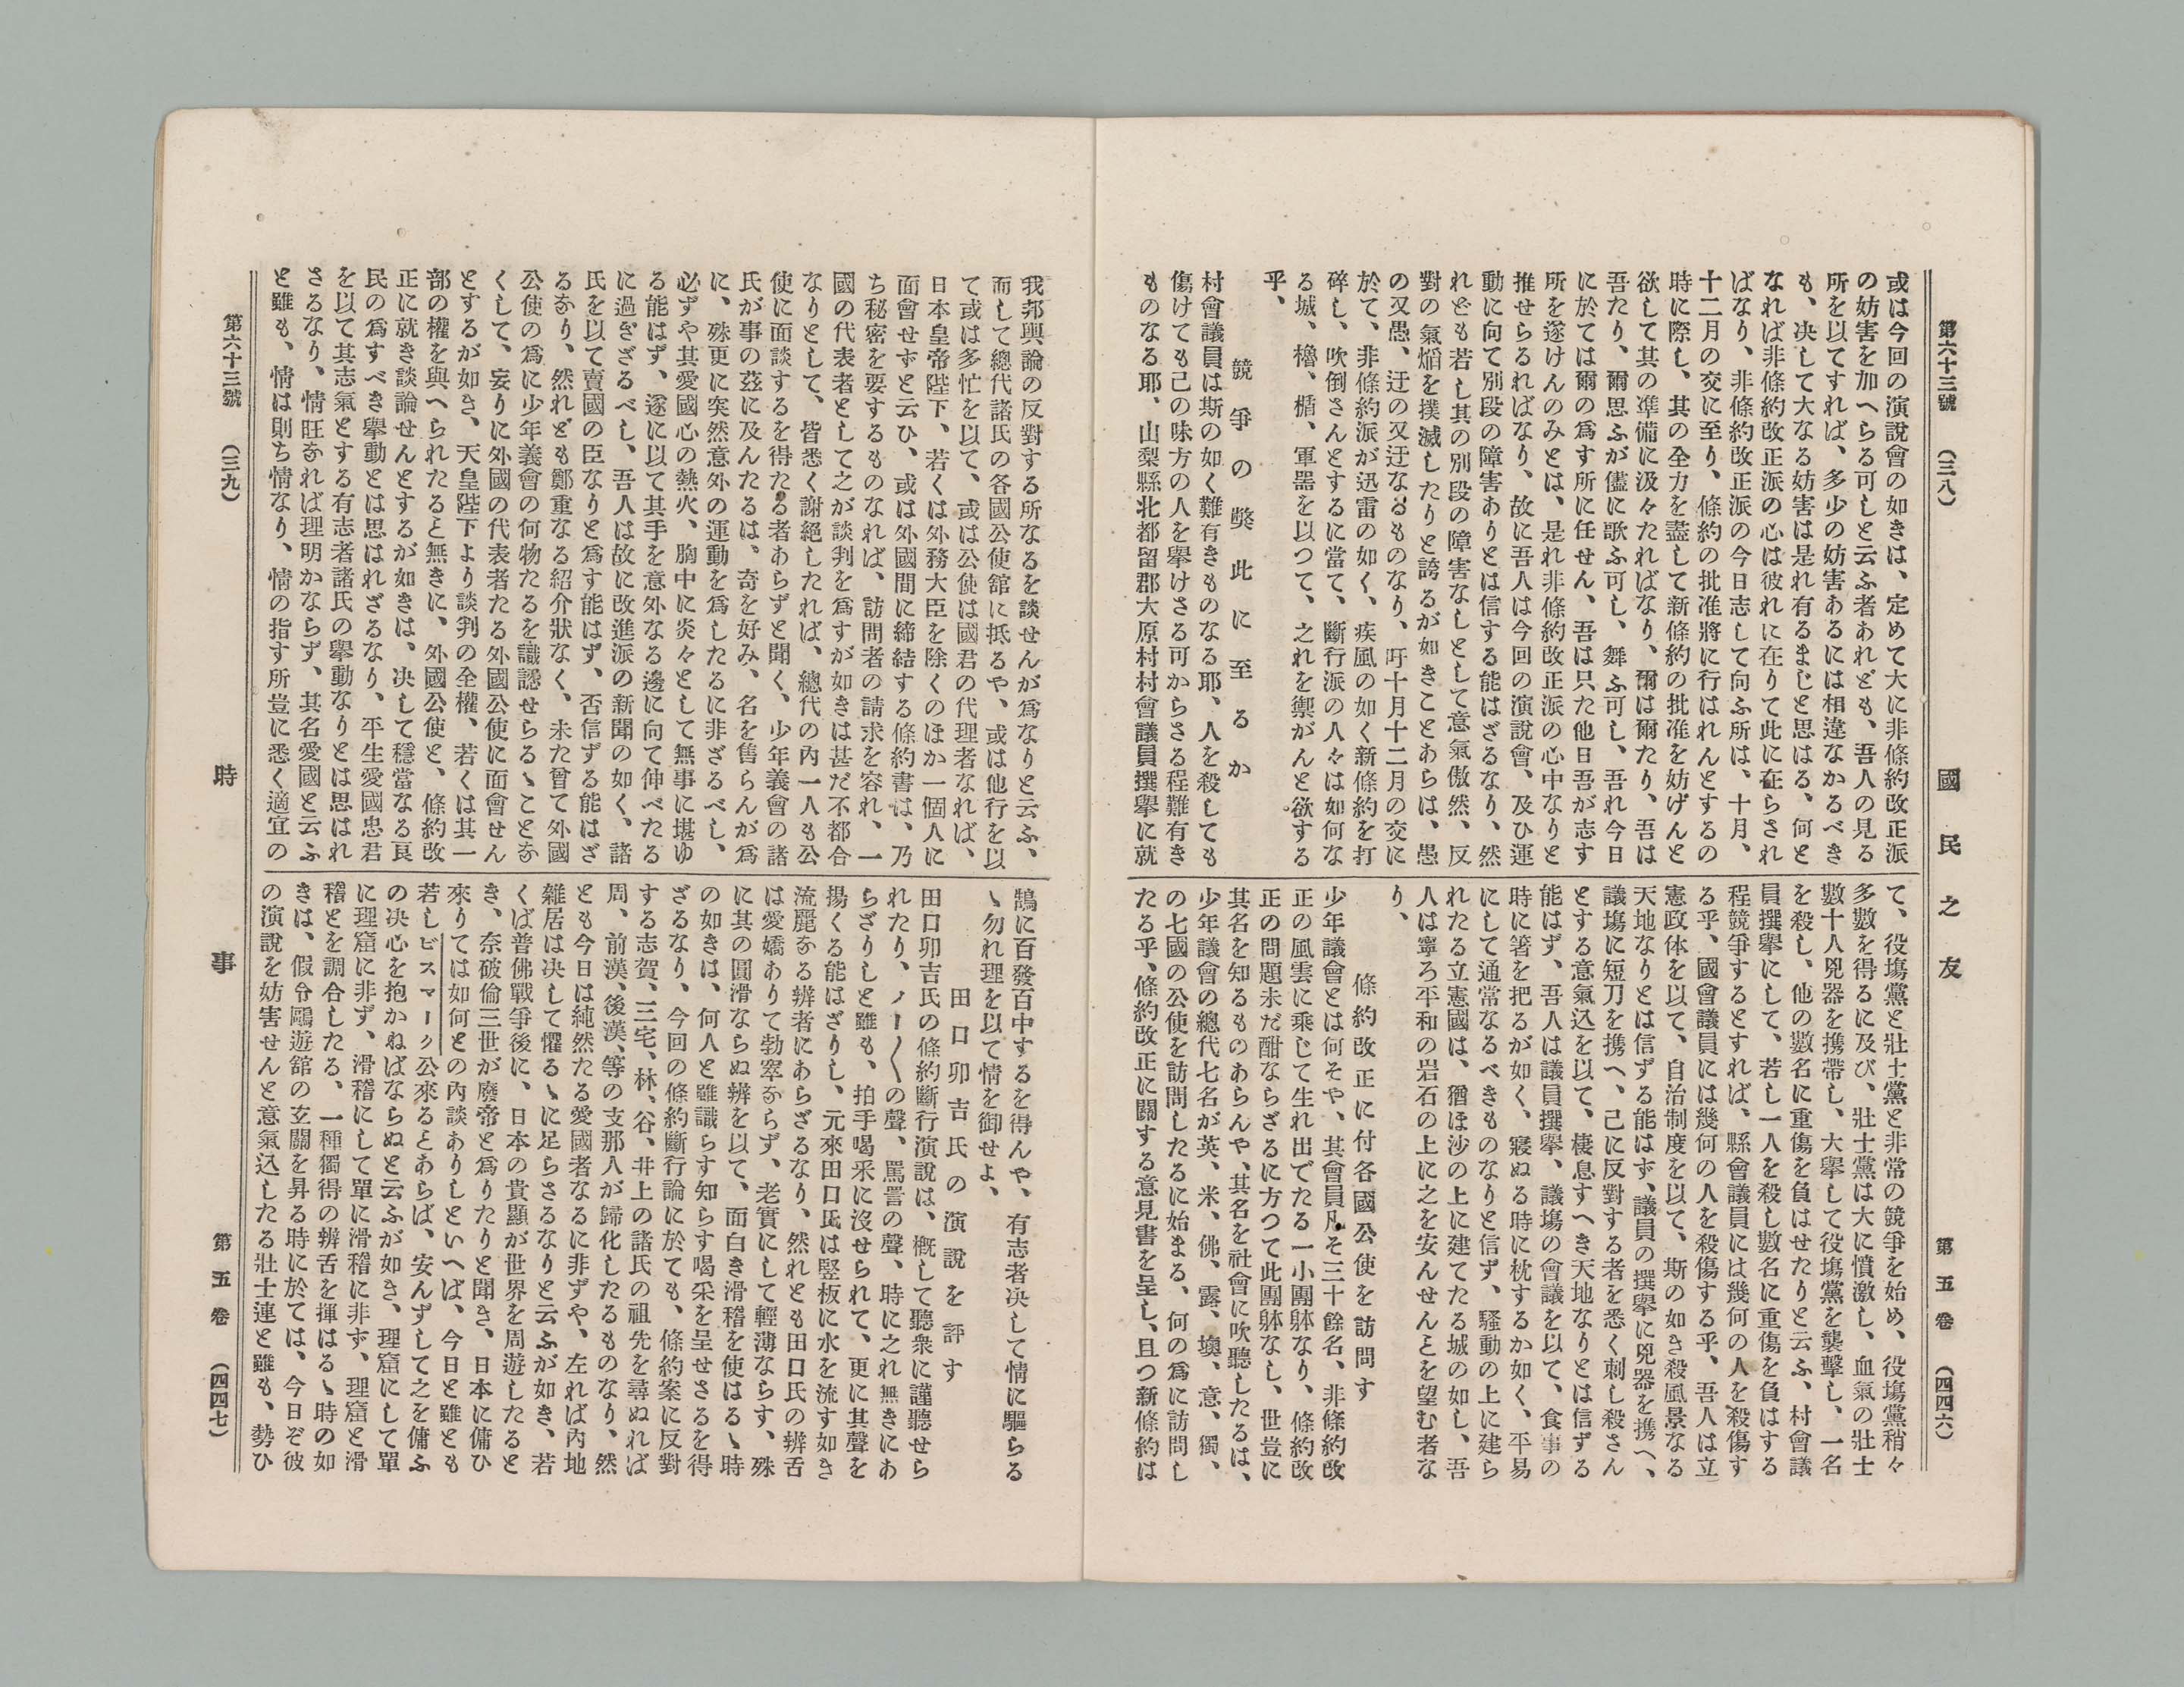 第六十三號 (三八) 國民之友 第五卷 (四四六)
或は今回の演說會の如きは、定めて大に非條約改正派
の妨害を加へらる可しと云ふ者あれども、吾人の見る
所を以てすれば、多少の妨害あるには相違なかるべき
も、决して大なる妨害は是れ有るまじと思はる、何と
なれば非條約改正派の心は彼れに在りて此に在らされ
ばなり、非條約改正派の今日志して向ふ所は、十月、
十二月の交に至り、條約の批准將に行はれんとするの
時に際し、其の全力を盡して新條約の批准を妨げんと
欲して其の凖備に汲々たればなり、爾は爾たり、吾は
吾たり、爾思ふが儘に歌ふ可し、舞ふ可し、吾れ今日
に於ては爾の爲す所に任せん、吾は只た他日吾が志す
所を遂けんのみとは、是れ非條約改正派の心中なりと
推せらるればなり、故に吾人は今回の演說會、及ひ運
動に向て別段の障害ありとは信する能はざるなり、然
れども若し其の別段の障害なしとして意氣傲然、反
對の氣焰を撲滅したりと誇るが如きことあらは、愚
の又愚、迂の又迂なるものなり、吁十月十二月の交に
於て、非條約派が迅雷の如く、疾風の如く新條約を打
碎し、吹倒さんとするに當て、斷行派の人々は如何な
る城、櫓、楯、軍器を以つて、之れを禦がんと欲する
乎、
競爭の獘此に至るか
村會議員は斯の如く難有きものなる耶、人を殺しても
傷けても己の味方の人を擧けさる可からさる程難有き
ものなる耶、山梨縣北都留郡大原村村會議員撰擧に就
て、役塲黨と壯士黨と非常の競爭を始め、役塲黨稍々
多數を得るに及び、壯士黨は大に憤激し、血氣の壯士
數十人兇器を携帶し、大擧して役塲黨を襲擊し、一名
を殺し、他の數名に重傷を負はせたりと云ふ、村會議
員撰擧にして、若し一人を殺し數名に重傷を負はする
程競爭するとすれば、縣會議員には幾何の人を殺傷す
る乎、國會議員には幾何の人を殺傷する乎、吾人は立
憲政体を以て、自治制度を以て、斯の如き殺風景なる
天地なりとは信ずる能はす、議員の撰擧に兇器を携へ、
議塲に短刀を携へ、己に反對する者を悉く刺し殺さん
とする意氣込を以て、棲息すへき天地なりとは信ずる
能はず、吾人は議員撰擧、議塲の會議を以て、食事の
時に箸を把るが如く、寢ぬる時に枕するか如く、平易
にして通常なるべきものなりと信ず、騷動の上に建ら
れたる立憲國は、猶ほ沙の上に建てたる城の如し、吾
人は寧ろ平和の岩石の上に之を安んせんとを望む者な
り、
條約改正に付各國公使を訪問す
少年議會とは何そや、其會員凡そ三十餘名、非條約改
正の風雲に乘じて生れ出でたる一小團躰なり、條約改
正の問題未だ酣ならざるに方つて此團躰なし、世豈に
其名を知るものあらんや、其名を社會に吹聽したるは、
少年議會の總代七名が英、米、佛、露、墺、意、獨、
の七國の公使を訪問したるに始まる、何の爲に訪問し
たる乎、條約改正に關する意見書を呈し、且つ新條約は
我邦輿論の反對する所なるを談せんが爲なりと云ふ、
而して總代諸氏の各國公使舘に抵るや、或は他行を以
て或は多忙を以て、或は公使は國君の代理者なれば、
日本皇帝陛下、若くは外務大臣を除くのほか一個人に
面會せずと云ひ、或は外國間に締結する條約書は、乃
ち秘密を要するものなれば、訪問者の請求を容れ、一
國の代表者として之が談判を爲すが如きは甚だ不都合
なりとして、皆悉く謝絕したれば、總代の內一人も公
使に面談するを得たる者あらずと聞く、少年義會の諸
氏が事の茲に及んたるは、奇を好み、名を售らんが爲
に、殊更に突然意外の運動を爲したるに非ざるべし、
必ずや其愛國心の熱火、胸中に炎々として無事に堪ゆ
る能はず、遂に以て其手を意外なる邊に向て伸べたる
に過ぎざるべし、吾人は故に改進派の新聞の如く、諸
氏を以て賣國の臣なりと爲す能はず、否信ずる能はざ
るなり、然れども鄭重なる紹介狀なく、未た曾て外國
公使の爲に少年義會の何物たるを識認せらるゝことな
くして、妄りに外國の代表者たる外國公使に面會せん
とするが如き、天皇陛下より談判の全權、若くは其一
部の權を與へられたると無きに、外國公使と、條約改
正に就き談論せんとするが如きは、决して穩當なる良
民の爲すべき擧動とは思はれざるなり、平生愛國忠君
を以て其志氣とする有志者諸氏の擧動なりとは思はれ
さるなり、情旺なれば理明かならず、其名愛國と云ふ
と雖も、情は則ち情なり、情の指す所豈に悉く適宜の
鵠に百發百中するを得んや、有志者决して情に驅らる
ゝ勿れ理を以て情を御せよ、
田口卯吉氏の演說を評す
田口卯吉氏の條約斷行演說は、槪して聽衆に謹聽せら
れたり、ノー〱の聲、罵詈の聲、時に之れ無きにあ
らざりしと雖も、拍手喝采に沒せられて、更に其聲を
揚くる能はざりし、元來田口氏は竪板に水を流す如き
流麗なる辨者にあらざるなり、然れとも田口氏の辨舌
は愛嬌ありて勃窣ならず、老實にして輕薄ならす、殊
に其の圓滑ならぬ辨を以て、面白き滑稽を使はるゝ時
の如きは、何人と雖識らす知らす喝采を呈せさるを得
ざるなり、今回の條約斷行論に於ても、條約案に反對
する志賀、三宅、林、谷、井上の諸氏の祖先を尋ぬれば
周、前漢、後漢、等の支那人が歸化したるものなり、然
とも今日は純然たる愛國者なるに非ずや、左れば內地
雜居は决して懼るゝに足らさるなりと云ふが如き、若
くば普佛戰爭後に、日本の貴顯が世界を周遊したると
き、奈破倫三世が廢帝と爲りたりと聞き、日本に傭ひ
來りては如何との內談ありしといへば、今日と雖とも
若しビスマーク公來るとあらば、安んずして之を傭ふ
の决心を抱かねばならぬと云ふが如き、理窟にして單
に理窟に非ず、滑稽にして單に滑稽に非す、理窟と滑
稽とを調合したる、一種獨得の辨舌を揮はるゝ時の如
きは、假令鷗遊舘の玄關を昇る時に於ては、今日ぞ彼
の演說を妨害せんと意氣込したる壯士連と雖も、勢ひ
第六十三號 (三九) 時事 第五卷 (四四七)